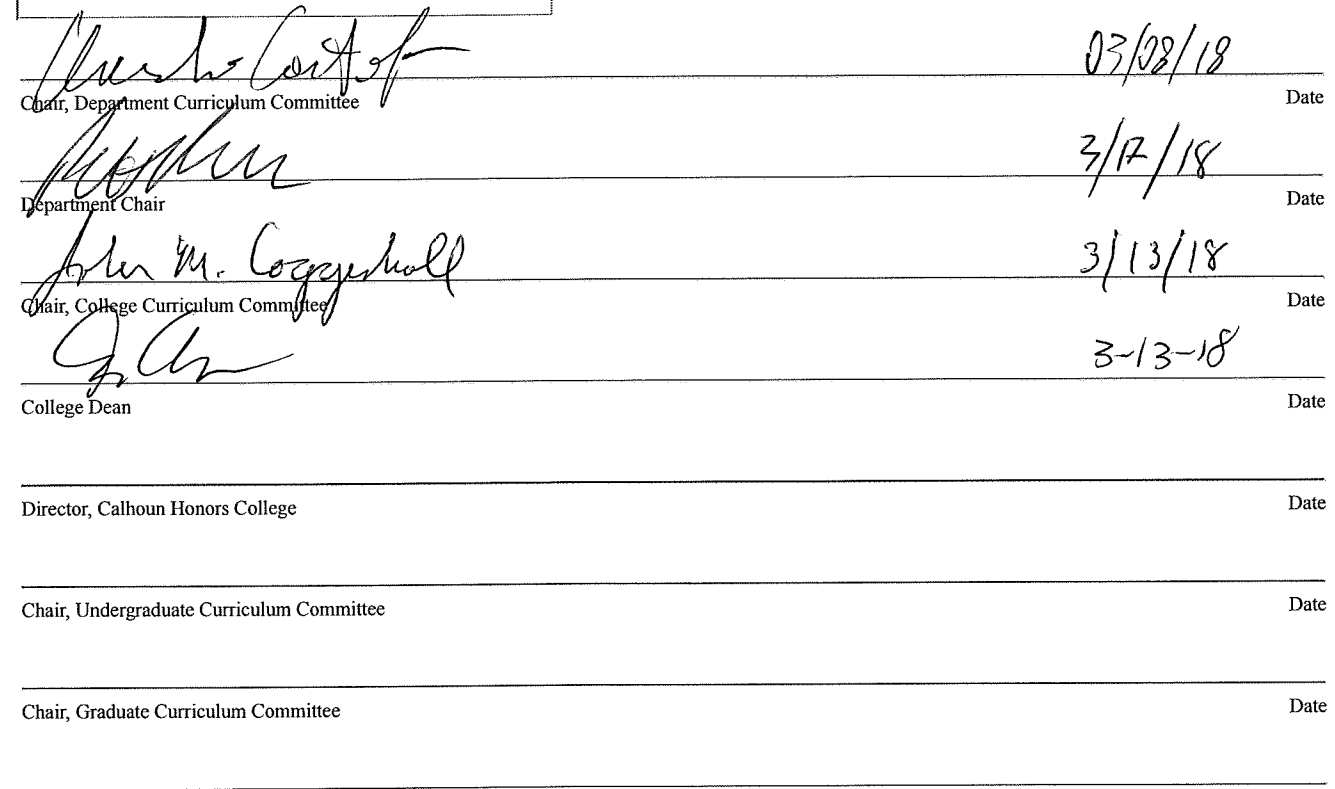 03/08/18
Chair, Department Curriculum Committee Date
3/12/18
Department Chair Date
John M. Coggeshall 3/13/18
Chair, College Curriculum Committee Date
3-13-18
College Dean Date
Director, Calhoun Honors College Date
Chair, Undergraduate Curriculum Committee Date
Chair, Graduate Curriculum Committee Date